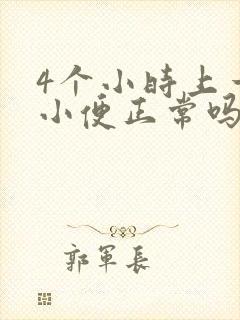 4个小時上一
小便正常吗
郭軍長